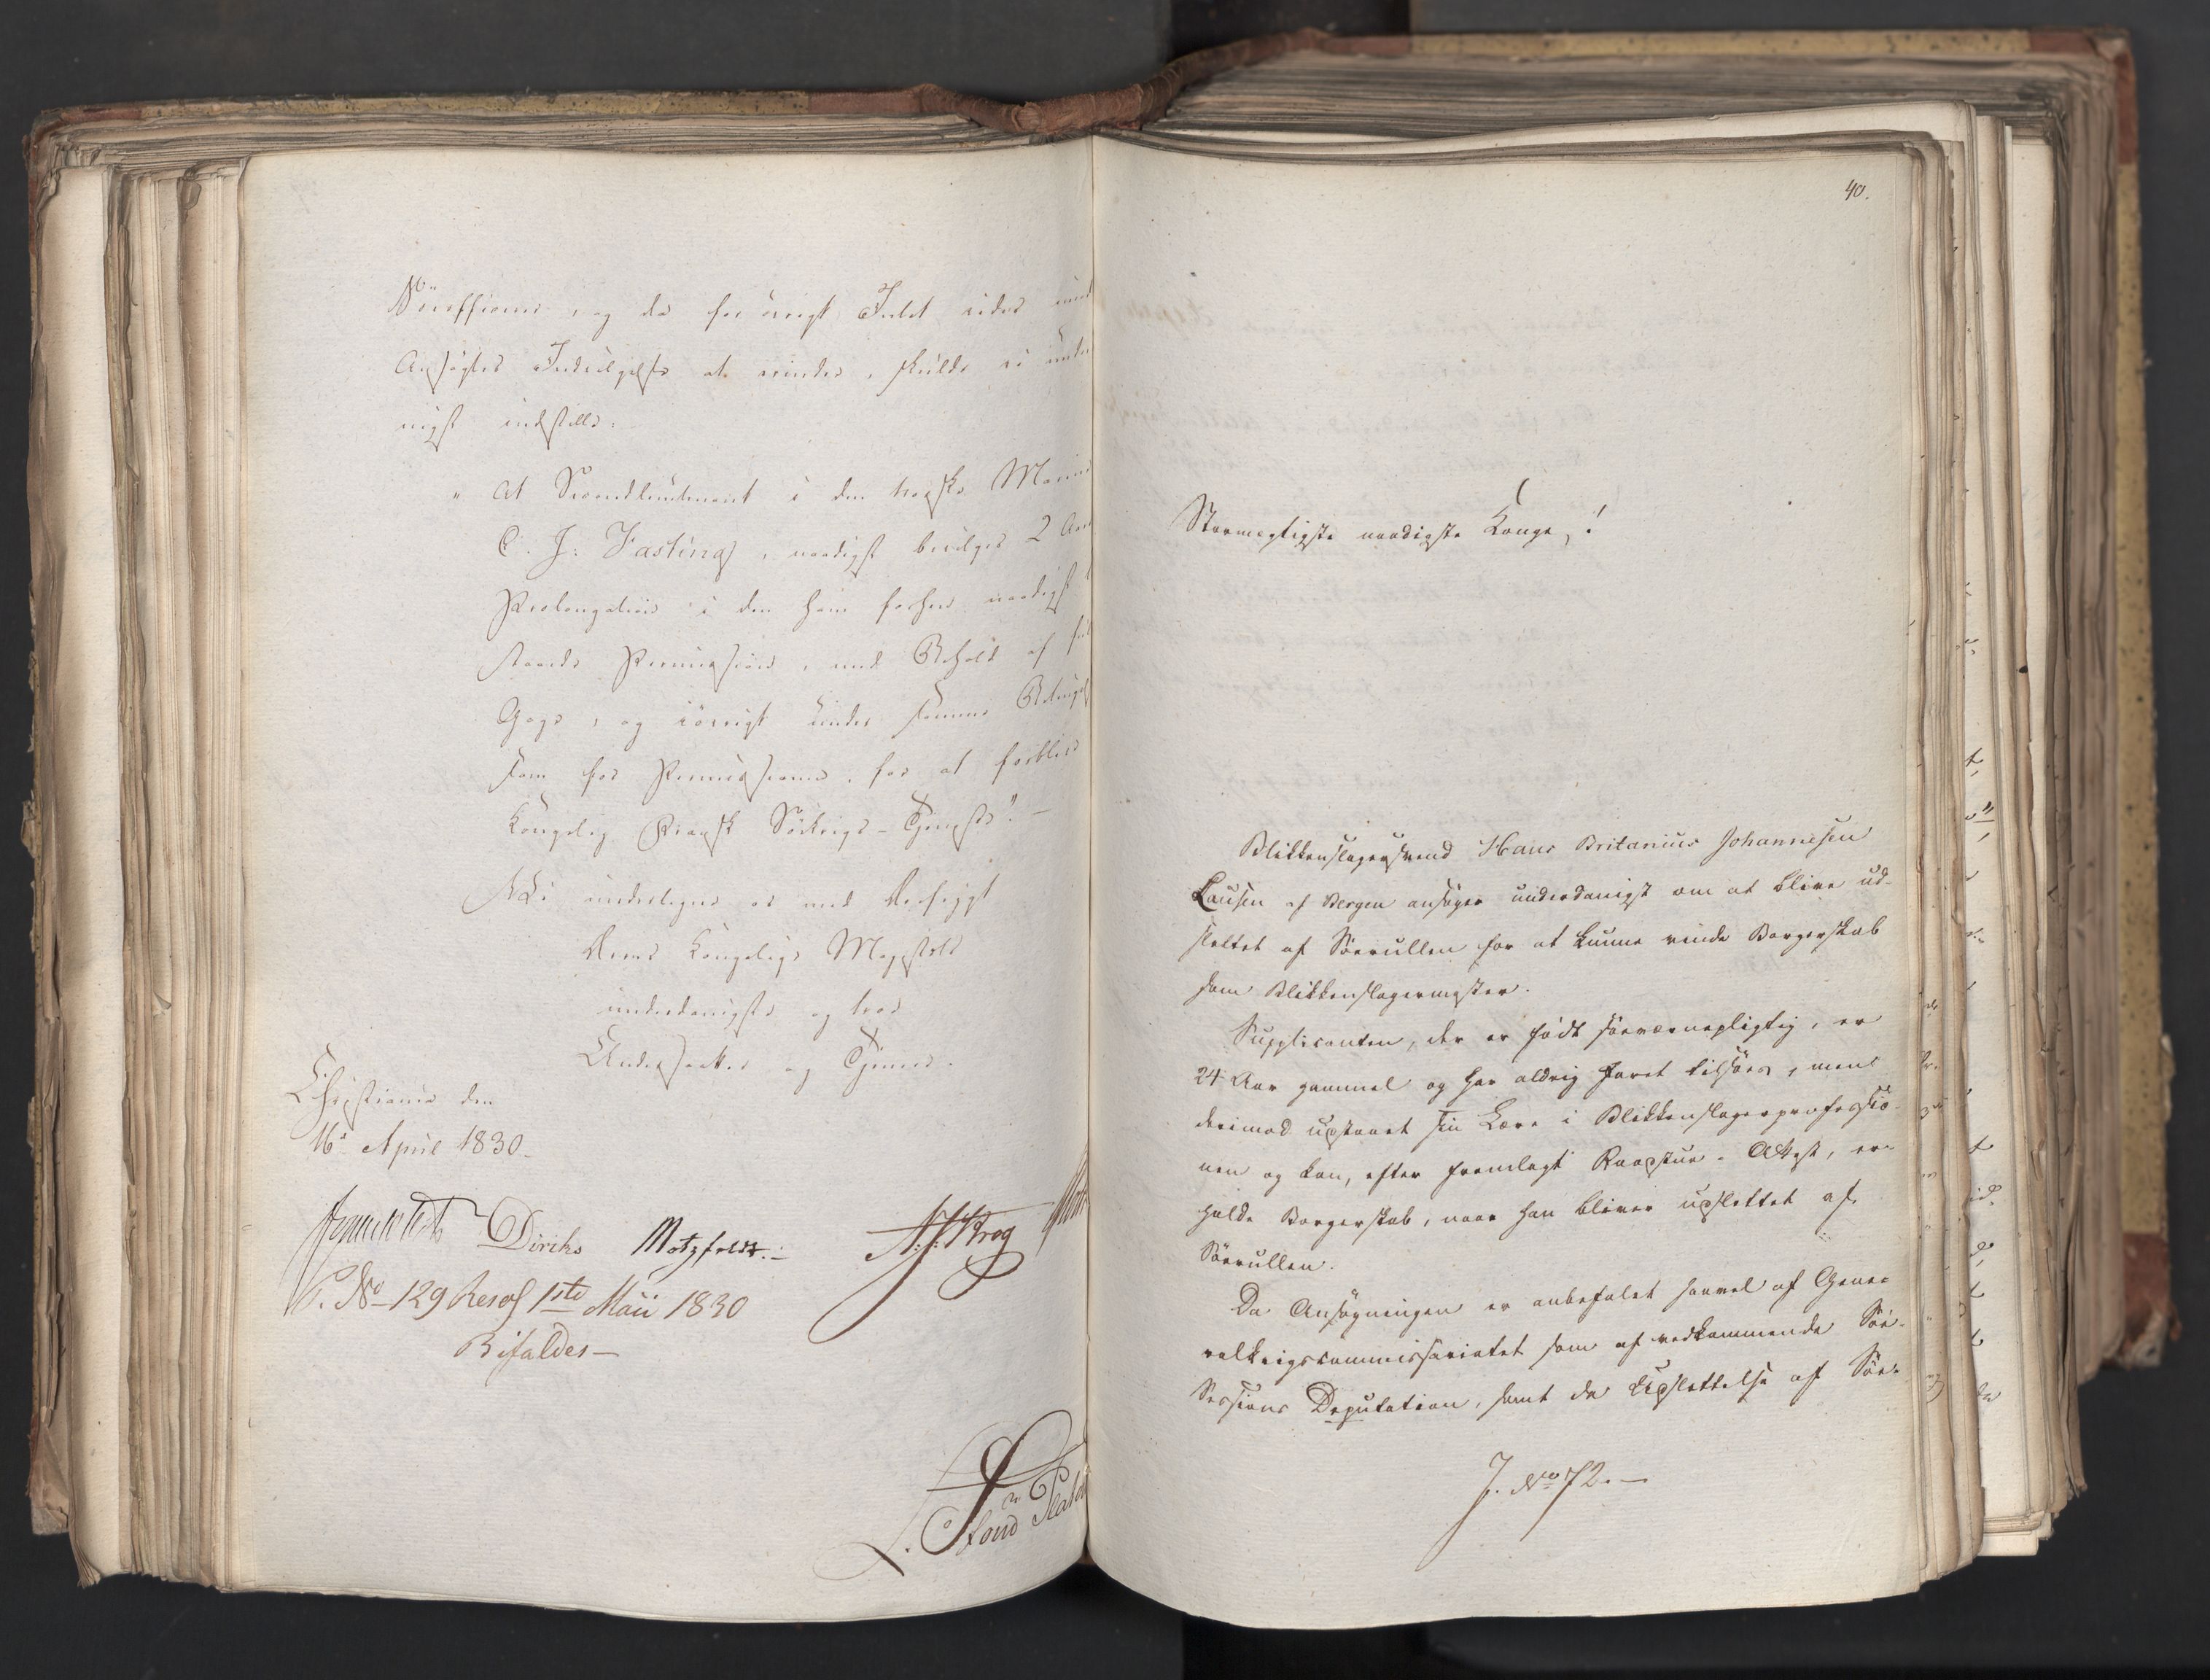 og da for övrigt Intet vides mod
Ansøgtes Indvilgelse at erindre, skulde vi under
nigst indstille:
" At Secondlieutenant i den norske Marine
C. J. Fasting, naadigst bevilges 2 Aars
Prolongation i den ham forhen naadigst
Permission, med Behold af
Gage, og iövrigt under samme Betingel
som för Permissionen, for at forblive
Kongelig Fransk Sökrigs-Tjeneste". —
Vi undertegne os med Devotion
Deres Kongelige Majestæts
underdanigste og troe
Undersaatter og Tjenere.
Christiania den
16de April 1830.
Diriks Motzfeldt. N. J. Krog
P. No 129 Resol 1ste Maii 1830
Bifaldes —
40.
Stormægtigste naadigste Konge,!
Blikkenslagersvend Hans Britanius Johannesen
Lausen af Bergen ansøger underdanigst om at blive ud-
slettet af Sörullen for at kunne vinde Borgerskab
som Blikkenslagermester.
Supplicanten, der er födt söeværnepligtig, er
24 Aar gammel og har aldrig faret tilsöes, men
derimod udstaaet sin Lære i Blikkenslagerprofessio-
nen og kan, efter fremlagt Raadstue-Attest, er-
holde Borgerskab, naar han bliver udslettet af
Sörullen.
Da Ansøgningen er anbefalet saavel af Gene-
ralkrigscommissariatet som af vedkommende Söe-
Sessions Deputation, samt da Udslettelse af Söe-
J. No 72. —